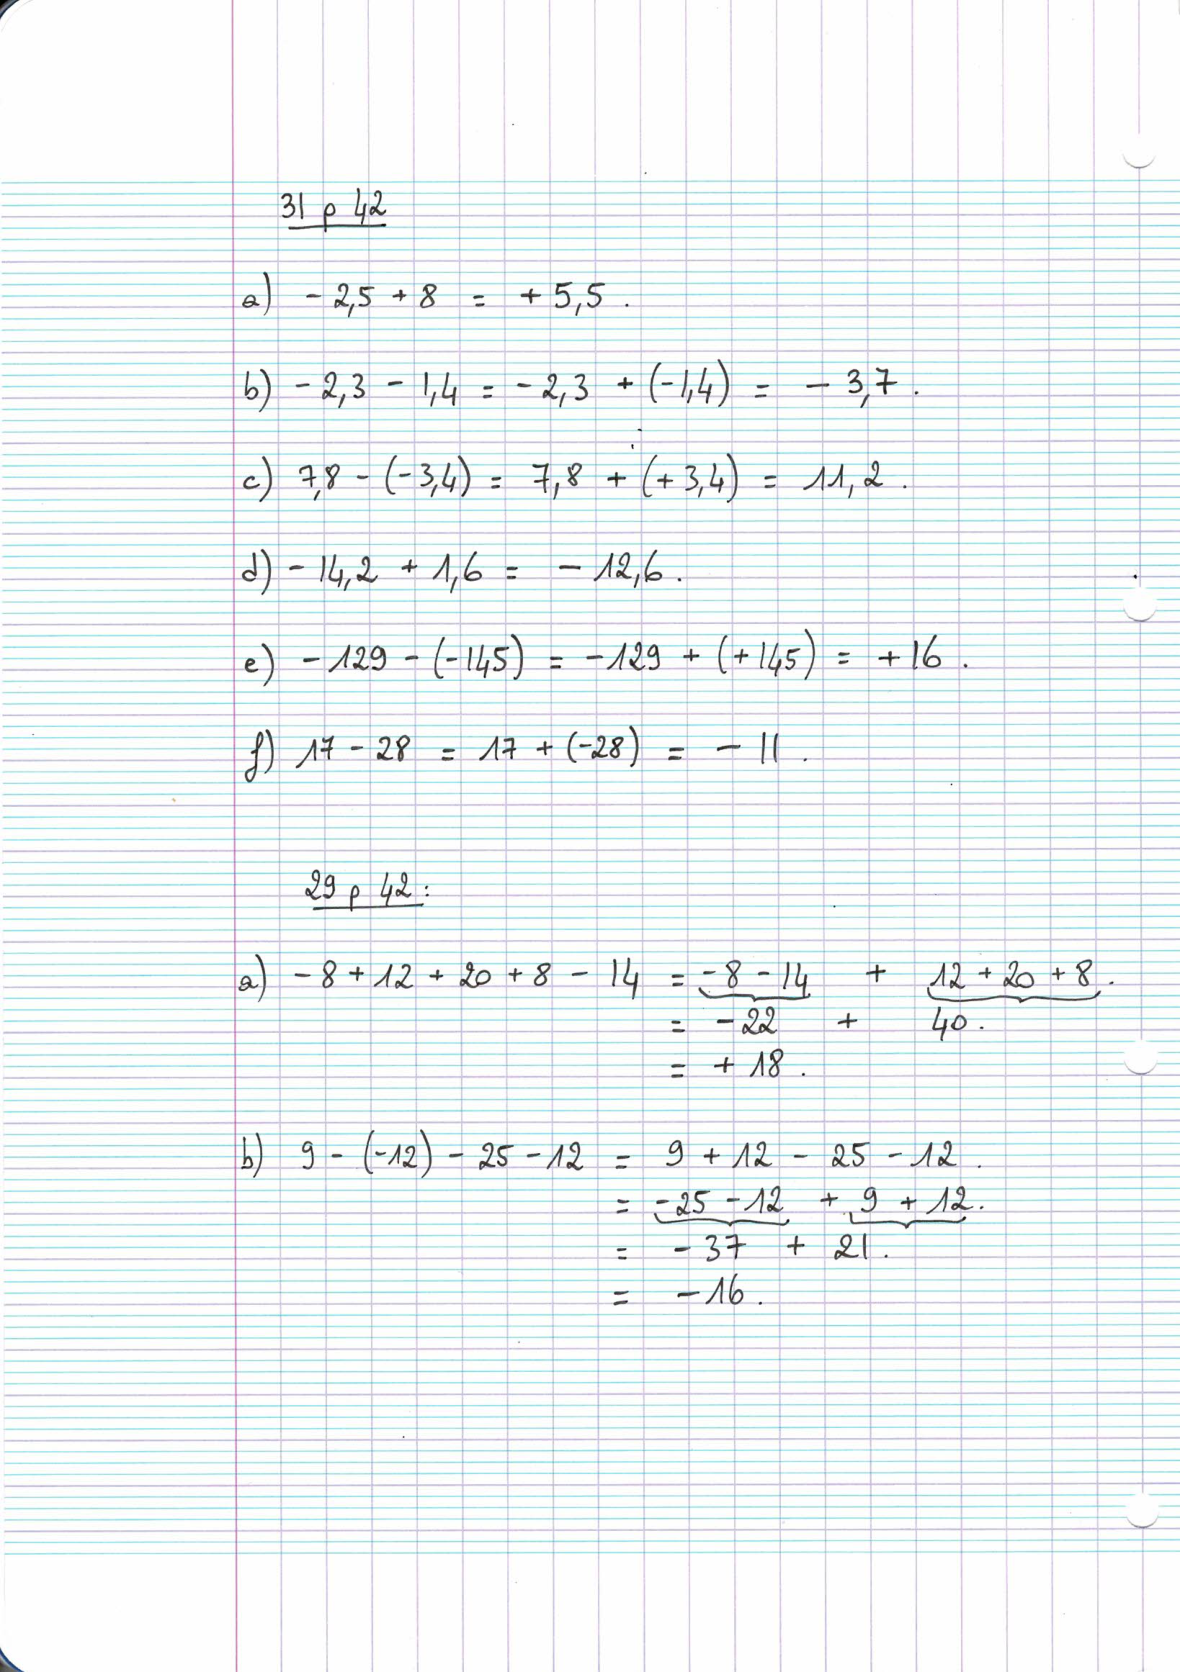 31 p 42
a) - 2,5 + 8 = + 5,5 .
b) - 2,3 - 1,4 = - 2,3 + (-1,4) = - 3,7 .
c) 7,8 - (-3,4) = 7,8 + (+ 3,4) = 11,2 .
d) - 14,2 + 1,6 = - 12,6 .
e) - 129 - (-145) = -129 + (+145) = +16 .
f) 17 - 28 = 17 + (-28) = - 11 .
29 p 42 :
a) - 8 + 12 + 20 + 8 - 14 = - 8 - 14 + 12 + 20 + 8 .
= - 22 + 40 .
= + 18 .
b) 9 - (-12) - 25 - 12 = 9 + 12 - 25 - 12 .
= - 25 - 12 + 9 + 12 .
= - 37 + 21 .
= - 16 .